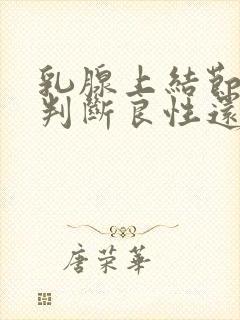 乳腺上結節
判斷良性還
唐荣華